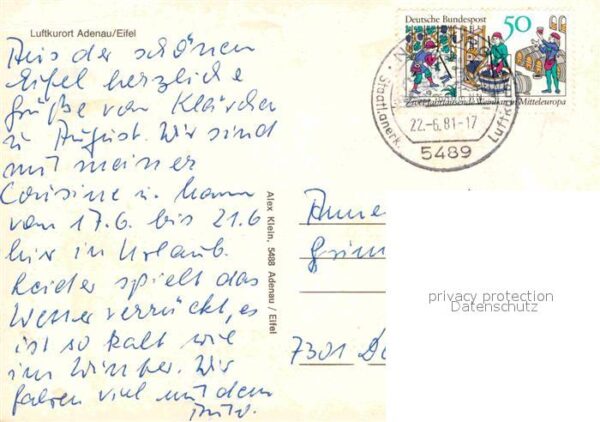 Luftkurort Adenau/Eifel
Aus der schönen
Eifel herzliche
Grüße von Klärchen
u August. Wir sind
mit meiner
Cousine u. Mann
vom 17.6. bis 21.6
hir in Urlaub.
Leider spielt das
Wetter verrückt, es
ist so kalt wie
im Winter. Wir
fahren viel mit dem
Auto.
Alex Klein, 5488 Adenau / Eifel
Deutsche Bundespost 50
Zwei Jahrtausende Weinbau in Mitteleuropa
Staatl. anerk. Luftk
22.-6.81-17
5489
Anne
Grim
7301 De
privacy protection
Datenschutz